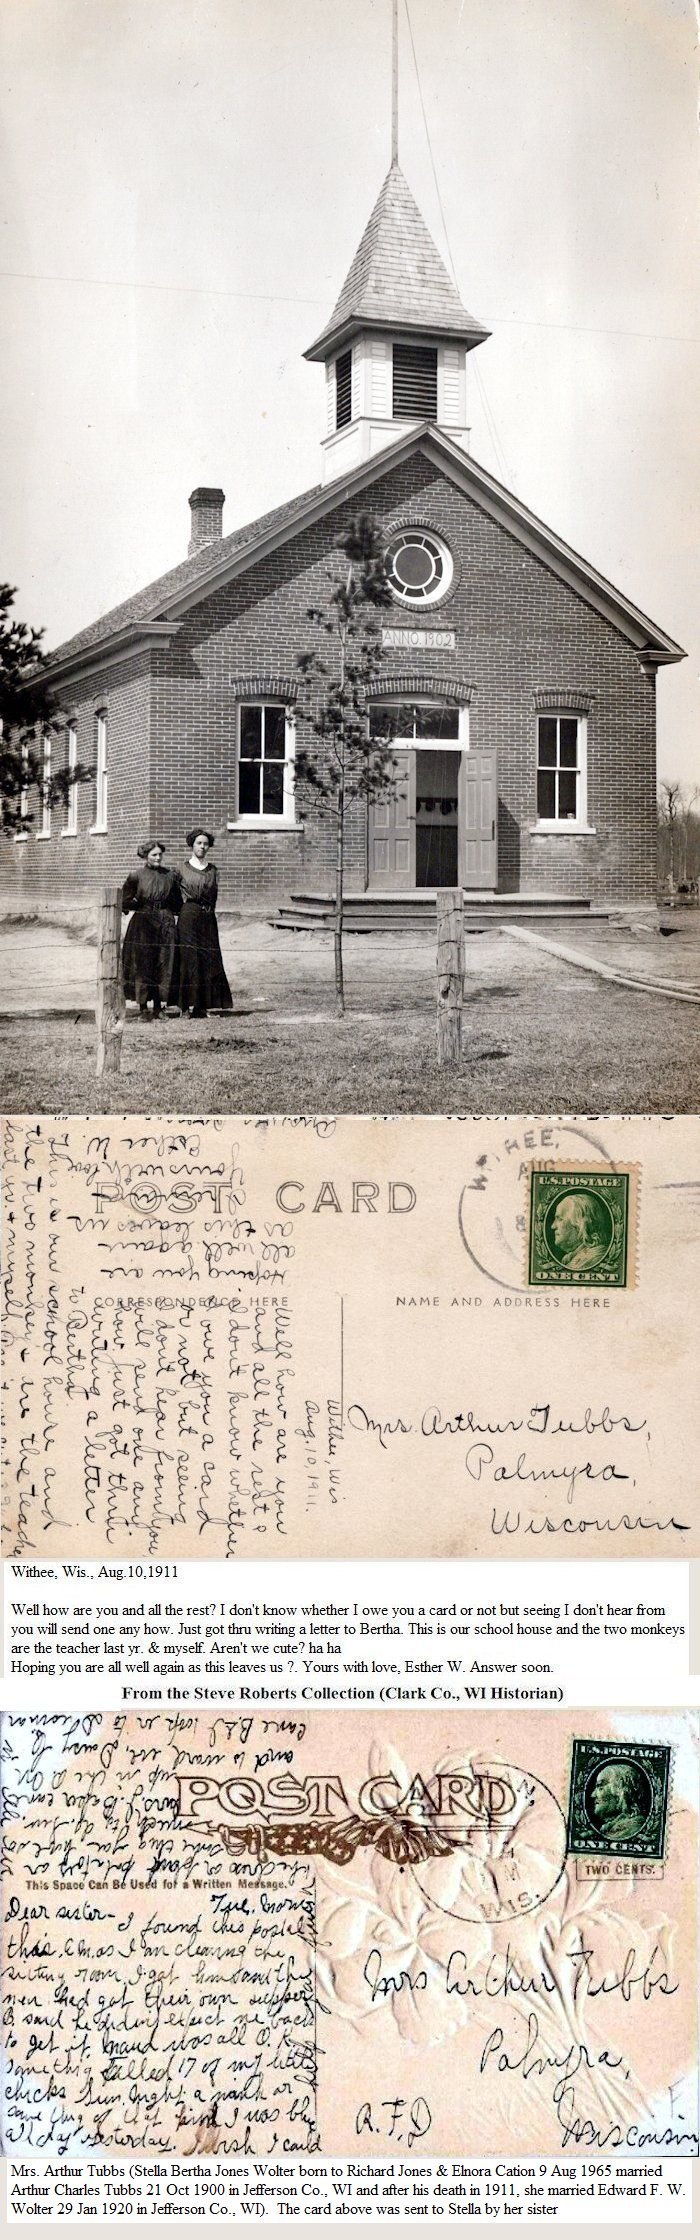 ANNO. 1902
POST CARD
WITHEE,
AUG
U.S. POSTAGE
ONE CENT
CORRESPONDENCE HERE
NAME AND ADDRESS HERE
Withee, Wis
Aug. 10, 1911.
Well how are you
and all the rest?
I don't know whether
I owe you a card
or not but seeing
I don't hear from you
will send one any
how. Just got thru
writing a letter
to Bertha.
This is our school house and
the two monkeys are the teacher
last yr. & myself.
Hoping you are
all well again
as this leaves us
Yours with love
Esther W.
Mrs. Arthur Tubbs,
Palmyra,
Wisconsin
Withee, Wis., Aug.10,1911
Well how are you and all the rest? I don't know whether I owe you a card or not but seeing I don't hear from
you will send one any how. Just got thru writing a letter to Bertha. This is our school house and the two monkeys
are the teacher last yr. & myself. Aren't we cute? ha ha
Hoping you are all well again as this leaves us ?. Yours with love, Esther W. Answer soon.
From the Steve Roberts Collection (Clark Co., WI Historian)
POST CARD
This Space Can Be Used for a Written Message.
U.S. POSTAGE
ONE CENT
TWO CENTS.
WIS.
Dear sister- Tue. Morn
I found this postal
this A.M. as I am cleaning the
sitting room. I got home and the
men had got their own supper
B said he didn't expect me back
to get it. Maud was all O.K.
Something killed 17 of my little
chicks Sun. night a mink or
some thing of that kind I was blue
all day yesterday. I wish I could
Mrs Arthur Tubbs
Palmyra,
R.F.D Wisconsin
Mrs. Arthur Tubbs (Stella Bertha Jones Wolter born to Richard Jones & Elnora Cation 9 Aug 1965 married
Arthur Charles Tubbs 21 Oct 1900 in Jefferson Co., WI and after his death in 1911, she married Edward F. W.
Wolter 29 Jan 1920 in Jefferson Co., WI). The card above was sent to Stella by her sister